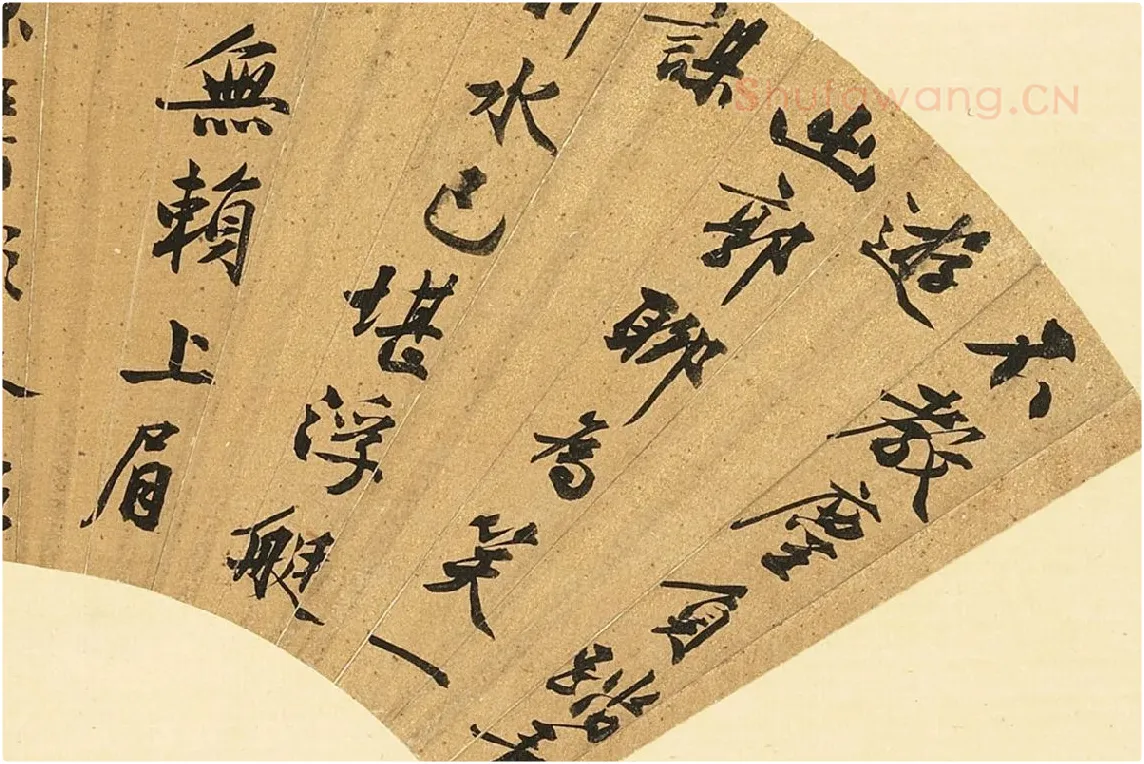 不教塵負踏青
遊
出郭聊為笑一
謀
水已堪浮艇
無賴上眉
Shufawang.CN